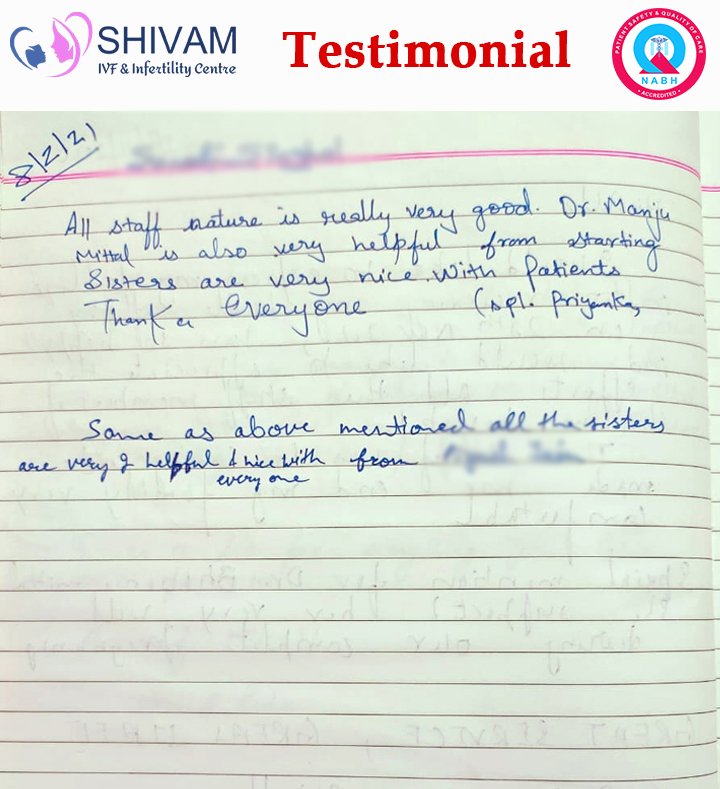 SHIVAM
IVF & Infertility Centre
Testimonial
PATIENT SAFETY & QUALITY OF CARE
NABH
• ACCREDITED •
8/2/21
All staff nature is really very good. Dr. Manju
Mittal is also very helpful from starting
Sisters are very nice with Patients
Thank u everyone (spl. Priyanka,
Same as above mentioned all the sisters
are very helpful & nice with from
every one